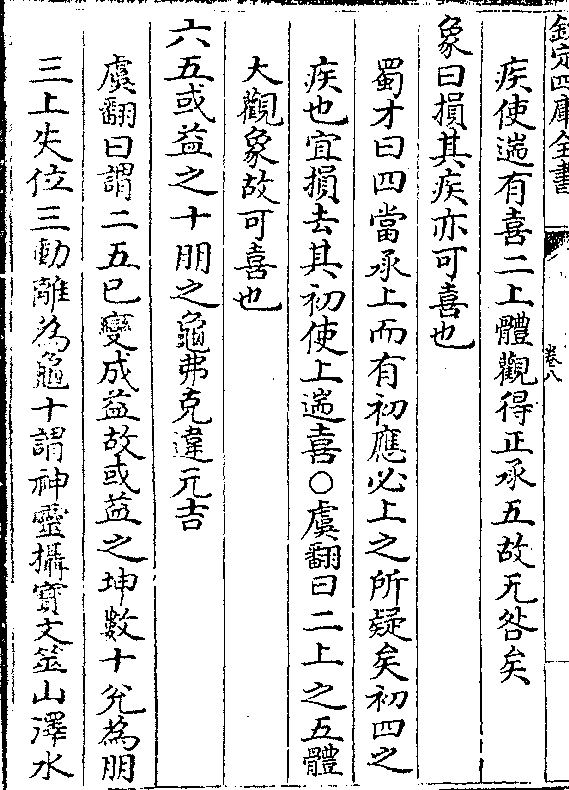 欽定四庫全書
卷八
疾使遄有喜二上體觀得正承五故无咎矣
象曰損其疾亦可喜也
蜀才曰四當承上而有初應必上之所疑矣初四之
疾也宜損去其初使上遄喜○虞翻曰二上之五體
大觀象故可喜也
六五或益之十朋之龜弗克違元吉
虞翻曰謂二五已變成益故或益之坤數十兊為朋
三上失位三動離為龜十謂神靈攝寶文筮山澤水